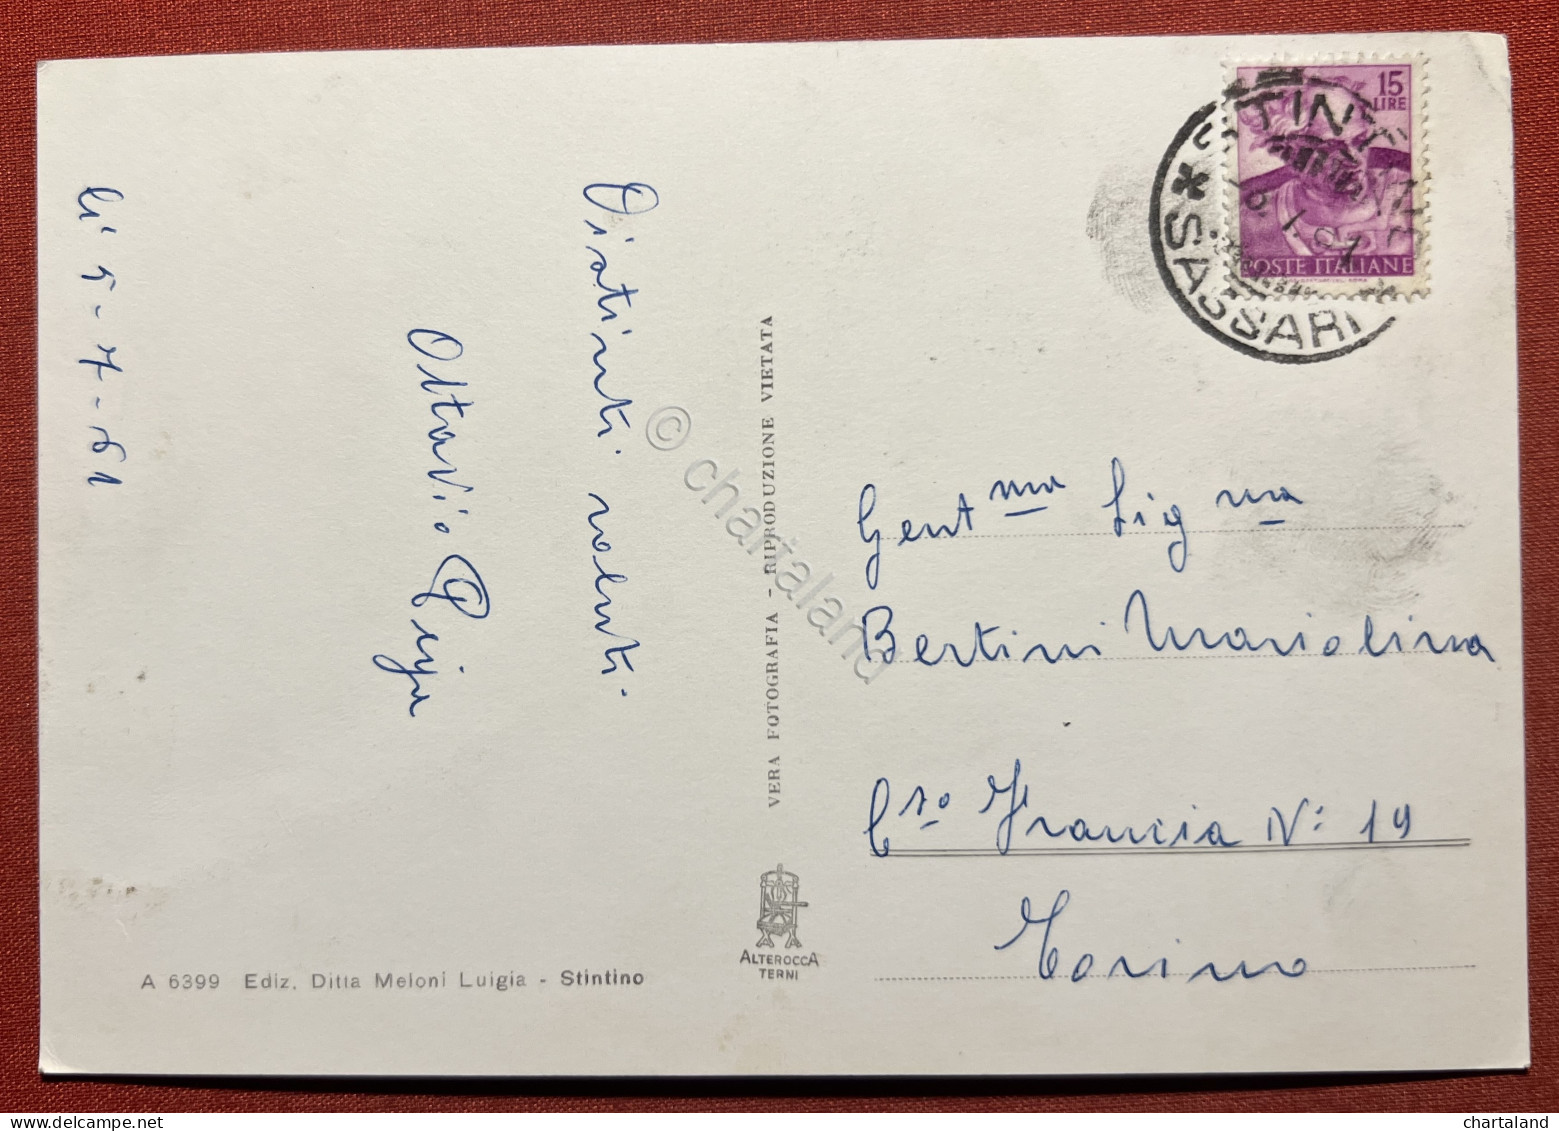 li 5-7-61
Distinti saluti.
Ottavio
A 6399 Ediz. Ditta Meloni Luigia - Stintino
VERA FOTOGRAFIA - RIPRODUZIONE VIETATA
ALTEROCCA
TERNI
© chartaland
15
LIRE
POSTE ITALIANE
STINTINO
* SASSARI *
Gent ma Sig na
Bertini Mariolina
C so Francia N: 19
Torino
chartaland